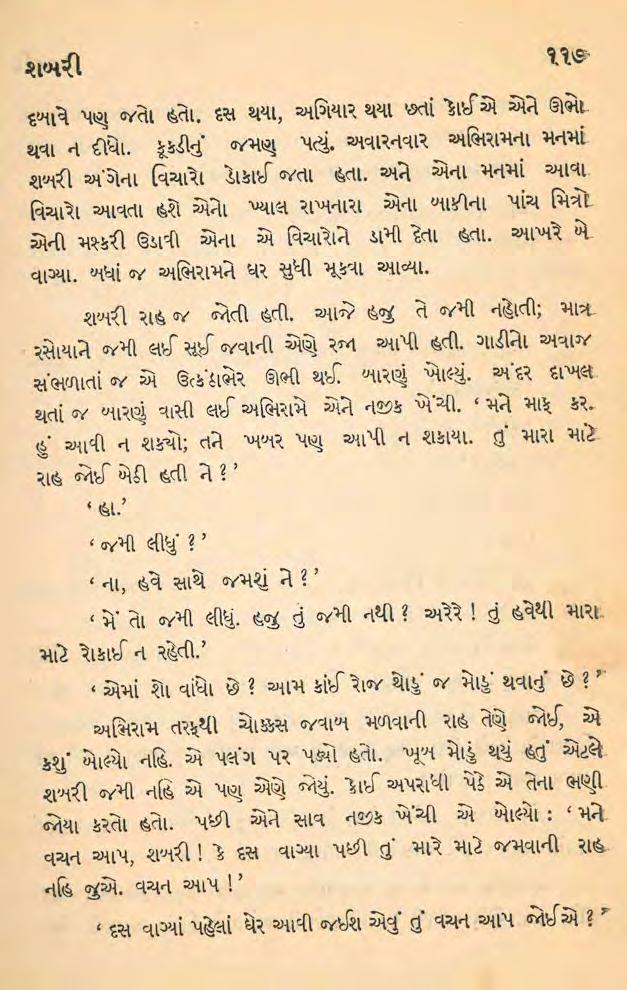 શબરી
૧૧૭
દબાવે પણ જતો હતો. દસ થયા, અગિયાર થયા છતાં કોઈ એ એને ઊભો
થવા ન દીધો. કૂકડીનું જમણ પત્યું. અવારનવાર અભિરામના મનમાં
શબરી અંગેના વિચારો ડોકાઈ જતા હતા. અને એના મનમાં આવા
વિચારો આવતા હશે એનો ખ્યાલ રાખનારા એના બાકીના પાંચ મિત્રો
એની મશ્કરી ઉડાવી એના એ વિચારોને ડામી દેતા હતા. આખરે બે
વાગ્યા. બધાં જ અભિરામને ઘર સુધી મૂકવા આવ્યા.
શબરી રાહ જ જોતી હતી. આજે હજુ તે જમી નહોતી; માત્ર
રસોયાને જમી લઈ સૂઈ જવાની એણે રજા આપી હતી. ગાડીનો અવાજ
સંભળાતાં જ એ ઉત્કંઠાભેર ઊભી થઈ. બારણું ખોલ્યું. અંદર દાખલ
થતાં જ બારણું વાસી લઈ અભિરામે એને નજીક ખેંચી. ‘ મને માફ કર.
હું આવી ન શક્યો; તને ખબર પણ આપી ન શકાયા. તું મારા માટે
રાહ જોઈ બેઠી હતી ને ? ’
‘ હા.’
‘ જમી લીધું ? ’
‘ ના, હવે સાથે જમશું ને ? ’
‘ મેં તો જમી લીધું. હજુ તું જમી નથી ? અરેરે ! તું હવેથી મારા
માટે રોકાઈ ન રહેતી.’
‘ એમાં શો વાંધો છે ? આમ કાંઈ રોજ થોડું જ મોડું થવાનું છે ? ’
અભિરામ તરફથી ચોક્કસ જવાબ મળવાની રાહ તેણે જોઈ, એ
કશું બોલ્યો નહિ. એ પલંગ પર પડ્યો હતો. ખૂબ મોડું થયું હતું એટલે
શબરી જમી નહિ એ પણ એણે જોયું. કોઈ અપરાધી પેઠે એ તેના ભણી
જોયા કરતો હતો. પછી એને સાવ નજીક ખેંચી એ બોલ્યો : ‘ મને
વચન આપ, શબરી ! કે દસ વાગ્યા પછી તું મારે માટે જમવાની રાહ
નહિ જુએ. વચન આપ ! ’
‘ દસ વાગ્યાં પહેલાં ઘેર આવી જઈશ એવું તું વચન આપ જોઈએ ? ’